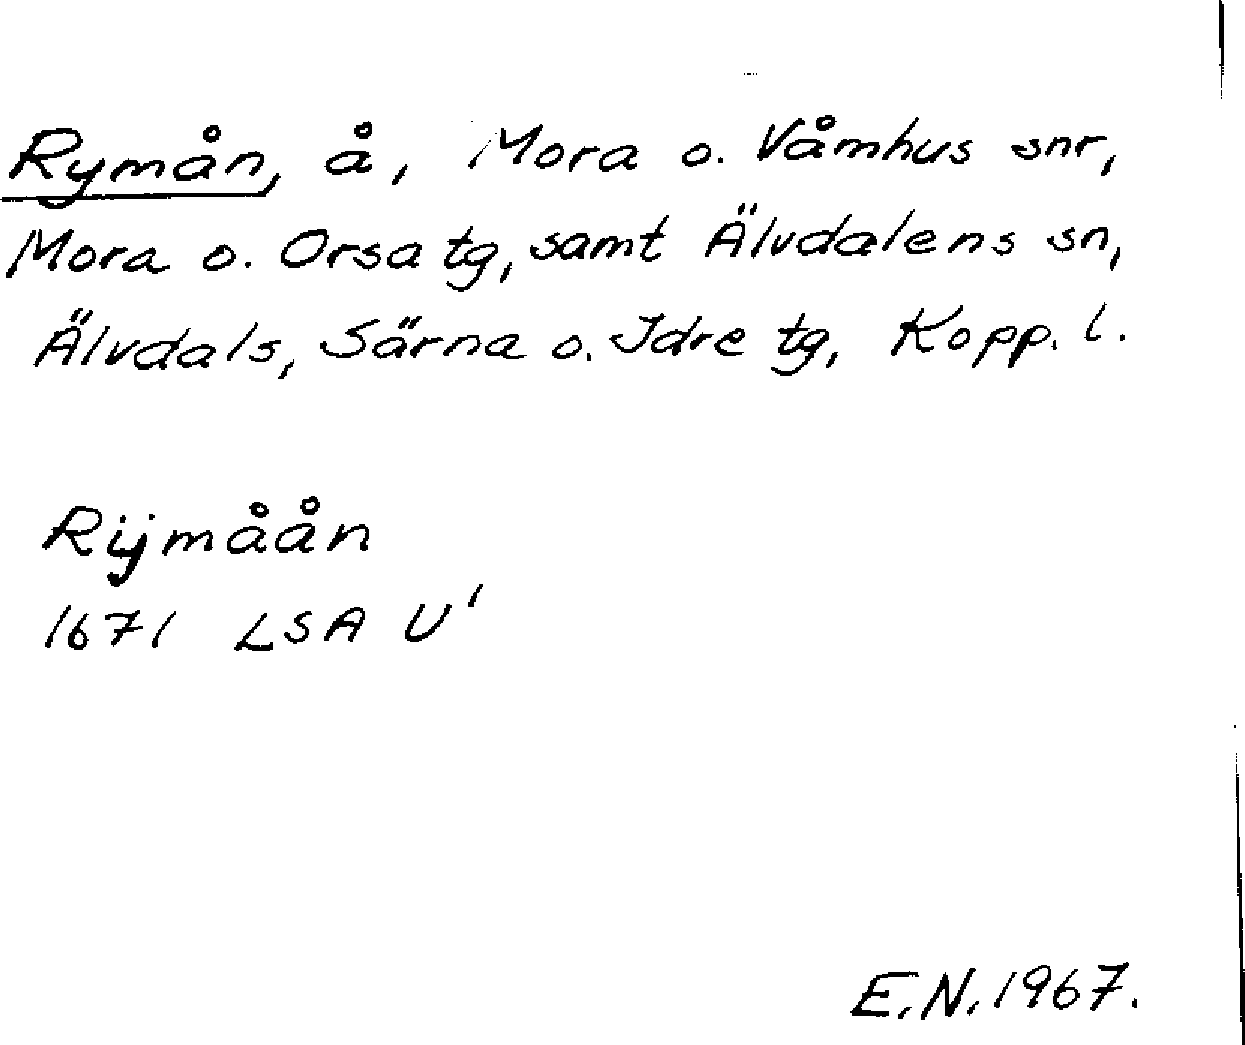 Rymån, å, Mora o. Våmhus snr,
Mora o. Orsa tg, samt Älvdalens sn,
Älvdals, Särna o. Idre tg, Kopp. l.
Rijmåån
1671 LSA U'
E.N. 1967.